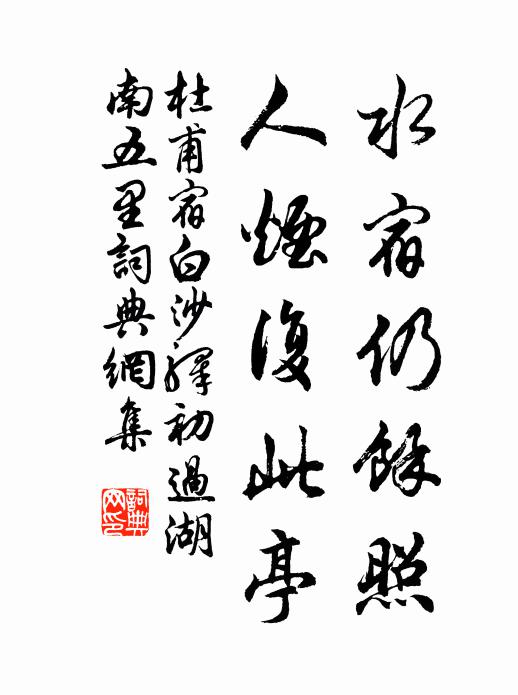 水宿仍餘照
人煙復此亭
杜甫宿白沙驛初過湖
南五里詞典網集
詞典
网印